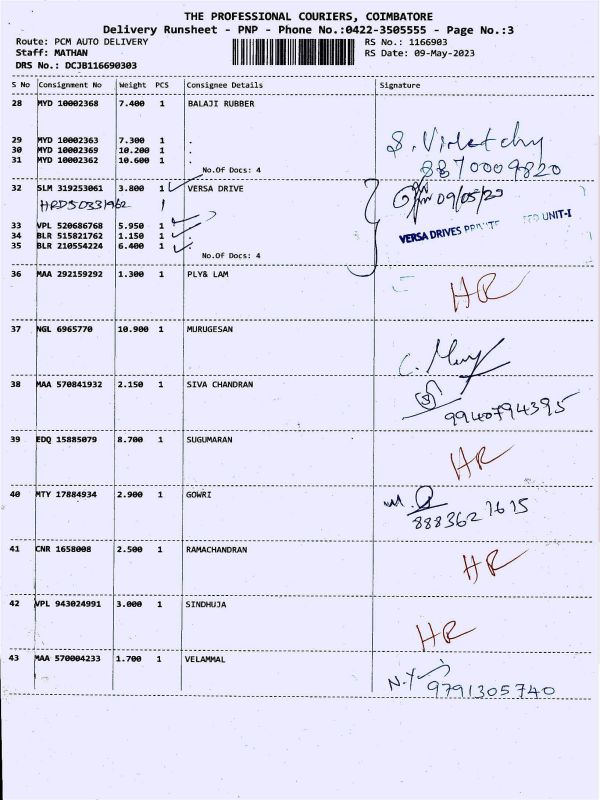 THE PROFESSIONAL COURIERS, COIMBATORE
Delivery Runsheet - PNP - Phone No.:0422-3505555 - Page No.:3
Route: PCM AUTO DELIVERY RS No.: 1166903
Staff: MATHAN RS Date: 09-May-2023
DRS No.: DCJB116690303
S No Consignment No Weight PCS Consignee Details Signature
28 MYD 10002368 7.400 1 BALAJI RUBBER
29 MYD 10002363 7.300 1 .
30 MYD 10002369 10.200 1 .
31 MYD 10002362 10.600 1 .
8870009820
No.Of Docs: 4
32 SLM 319253061 3.800 1 VERSA DRIVE
09/05/23
HRD50331962 1
VERSA DRIVES UNIT-I
33 VPL 520686768 5.950 1 .
34 BLR 515821762 1.150 1 .
35 BLR 210554224 6.400 1 .
No.Of Docs: 4
36 MAA 292159292 1.300 1 PLY& LAM
HR
37 NGL 6965770 10.900 1 MURUGESAN
38 MAA 570841932 2.150 1 SIVA CHANDRAN
9940794395
39 EDQ 15885079 8.700 1 SUGUMARAN
HR
40 MTY 17884934 2.900 1 GOWRI
8883621615
41 CNR 1658008 2.500 1 RAMACHANDRAN
HR
42 VPL 943024991 3.000 1 SINDHUJA
HR
43 MAA 570004233 1.700 1 VELAMMAL
N.Y
9791305740